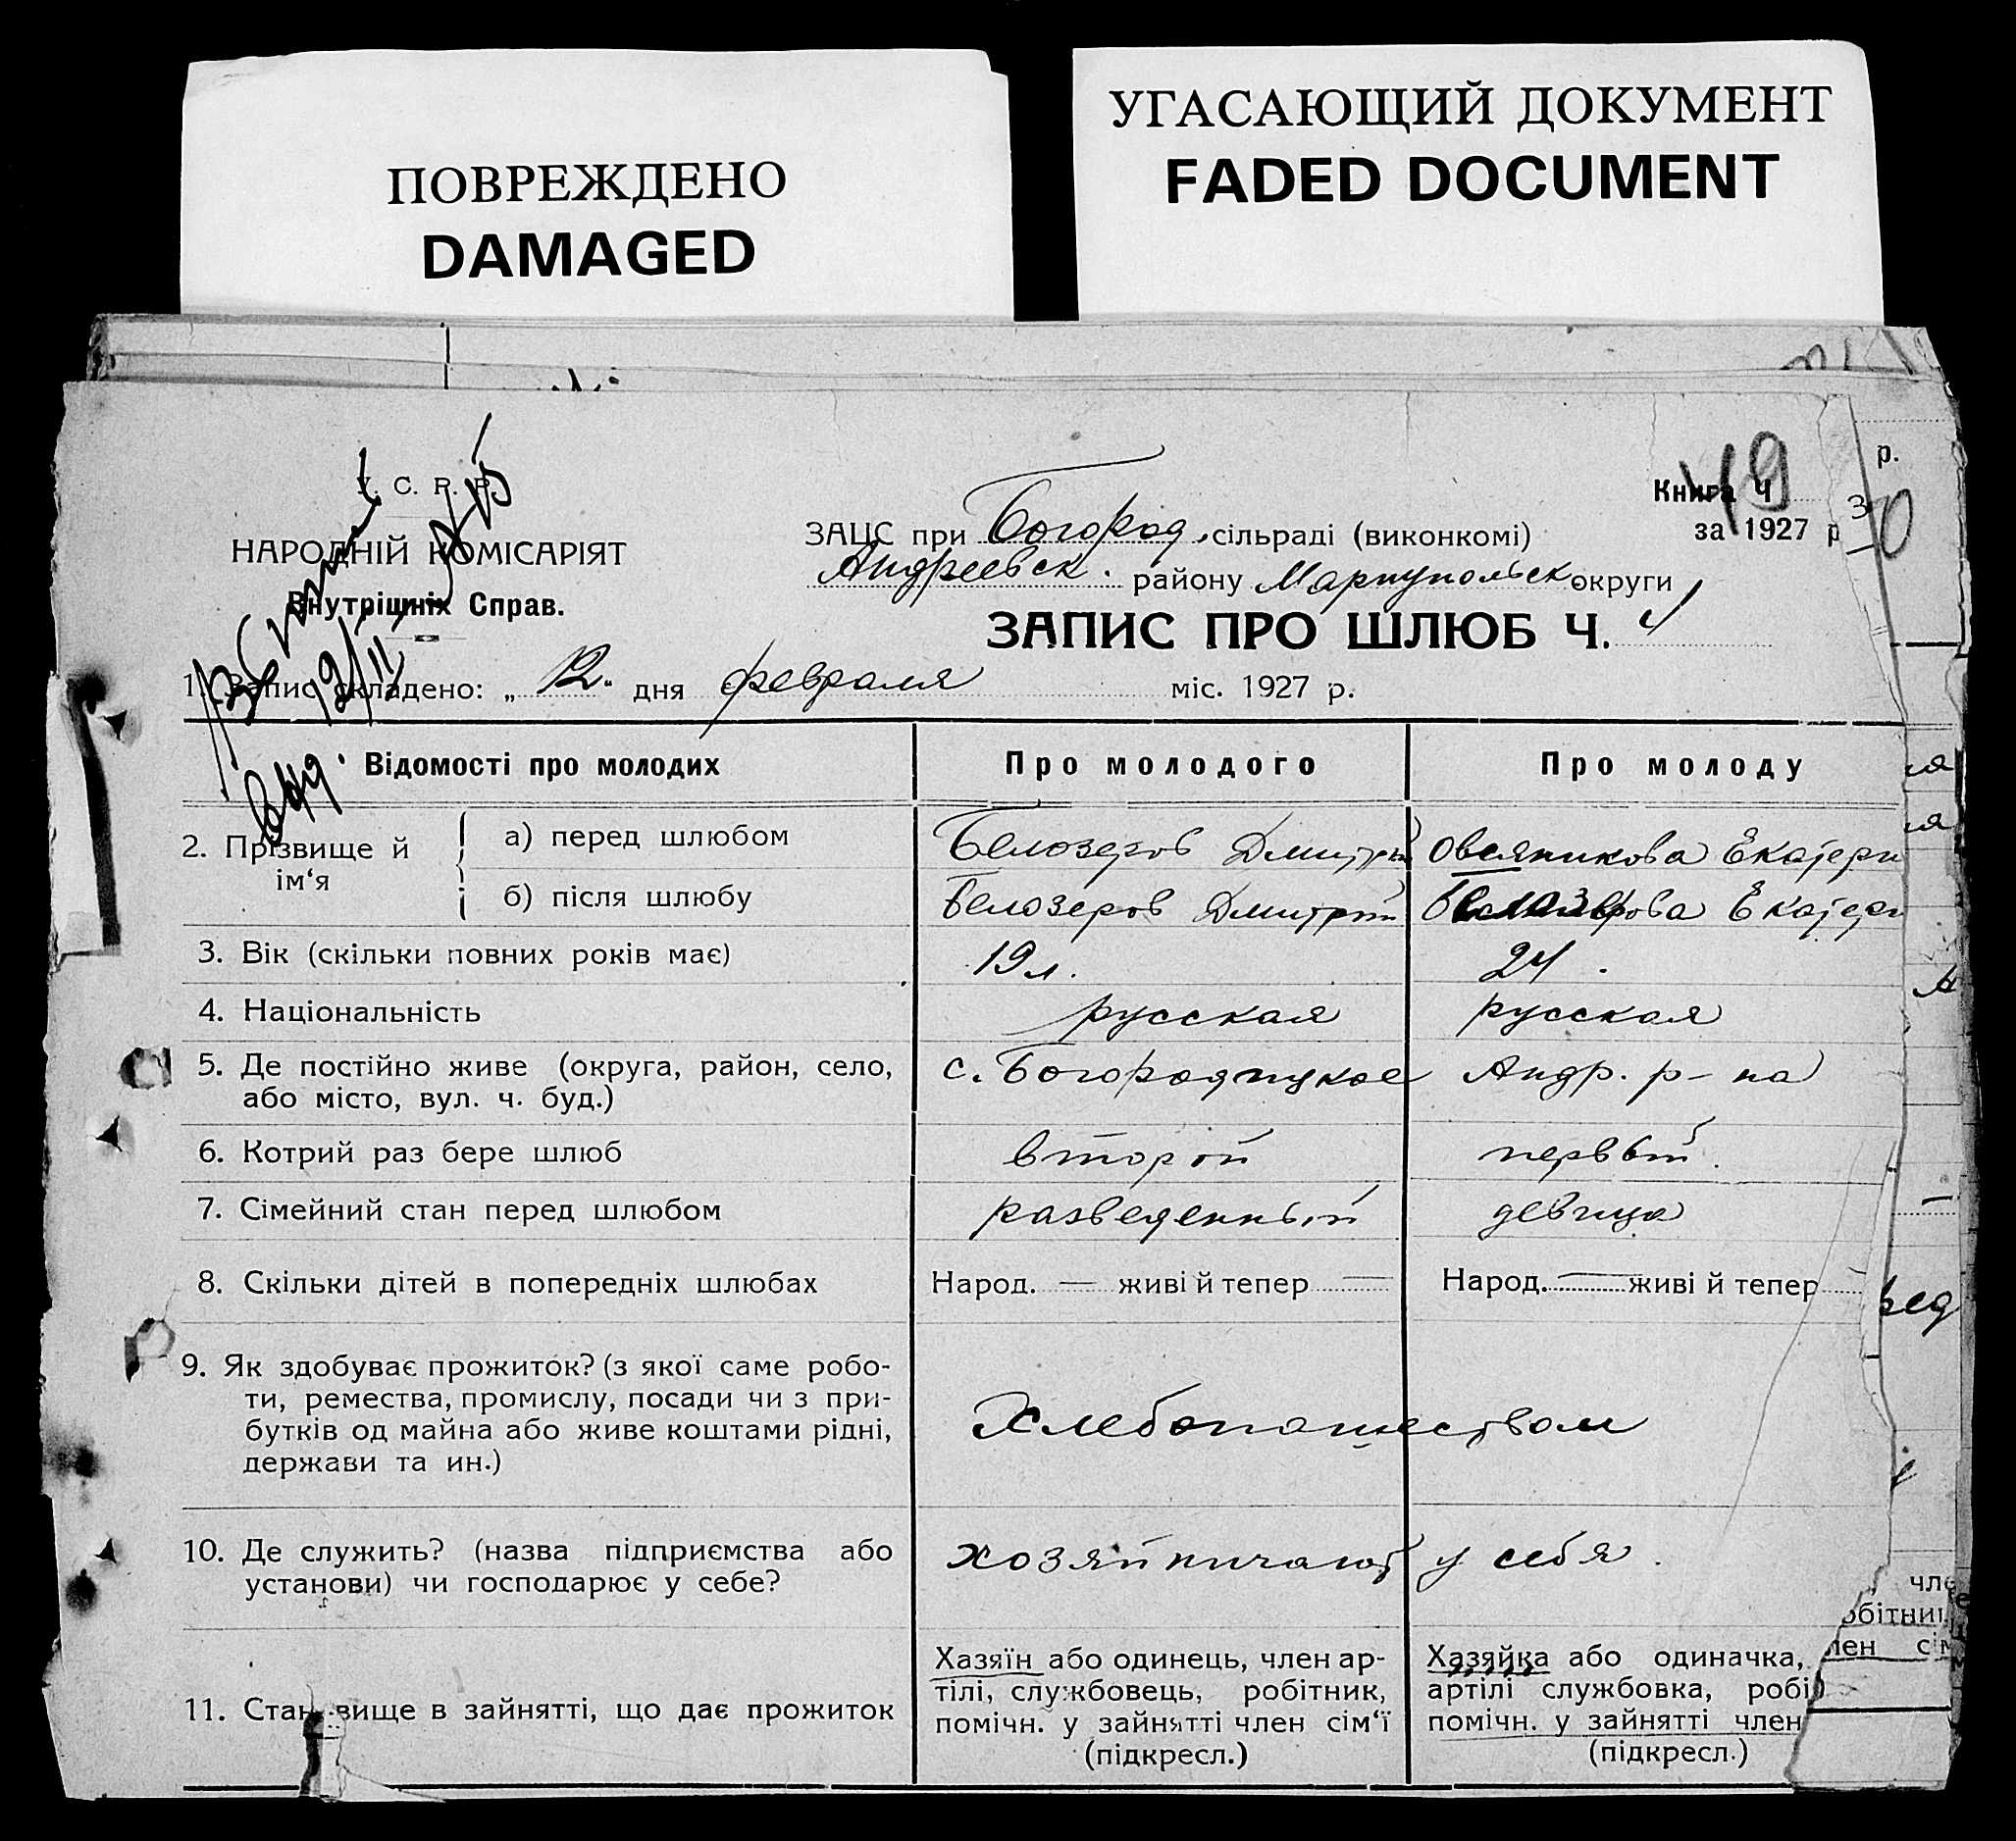 ПОВРЕЖДЕНО
DAMAGED
УГАСАЮЩИЙ ДОКУМЕНТ
FADED DOCUMENT
У. С. Р. Р.
НАРОДНІЙ КОМІСАРІЯТ
Внутрішніх Справ.
12/II
Книга Ч
49
за 1927 р
р.
ЗАЦС при Богород. сільраді (виконкомі)
Андреевск. району Мариупольск округи
ЗАПИС ПРО ШЛЮБ Ч. 4
1. Запис складено: „ 12 " дня февраля міс. 1927 р.
Відомості про молодих Про молодого Про молоду
2. Прізвище й ім‘я
а) перед шлюбом Белозеров Дмитрий Овсянникова Екатери
б) після шлюбу Белозеров Дмитрий Белозерова Екатери
3. Вік (скільки повних років має) 19 л. 24.
4. Національність русская русская
5. Де постійно живе (округа, район, село, с. Богородицкое Андр. р-на
або місто, вул. ч. буд.)
6. Котрий раз бере шлюб второй первый.
7. Сімейний стан перед шлюбом разведенный девица
8. Скільки дітей в попередніх шлюбах Народ. — живі й тепер — Народ. — живі й тепер
9. Як здобуває прожиток? (з якої саме робо-
ти, ремества, промислу, посади чи з при-
бутків од майна або живе коштами рідні, Хлебопашеством
держави та ин.)
10. Де служить? (назва підприємства або хозяйничают у себя.
установи) чи господарює у себе?
11. Становище в зайнятті, що дає прожиток
Хазяїн або одинець, член ар-
тілі, службовець, робітник,
помічн. у зайнятті член сім‘ї
(підкресл.)
Хазяйка або одиначка,
артілі службовка, робі
помічн. у зайнятті член
(підкресл.)